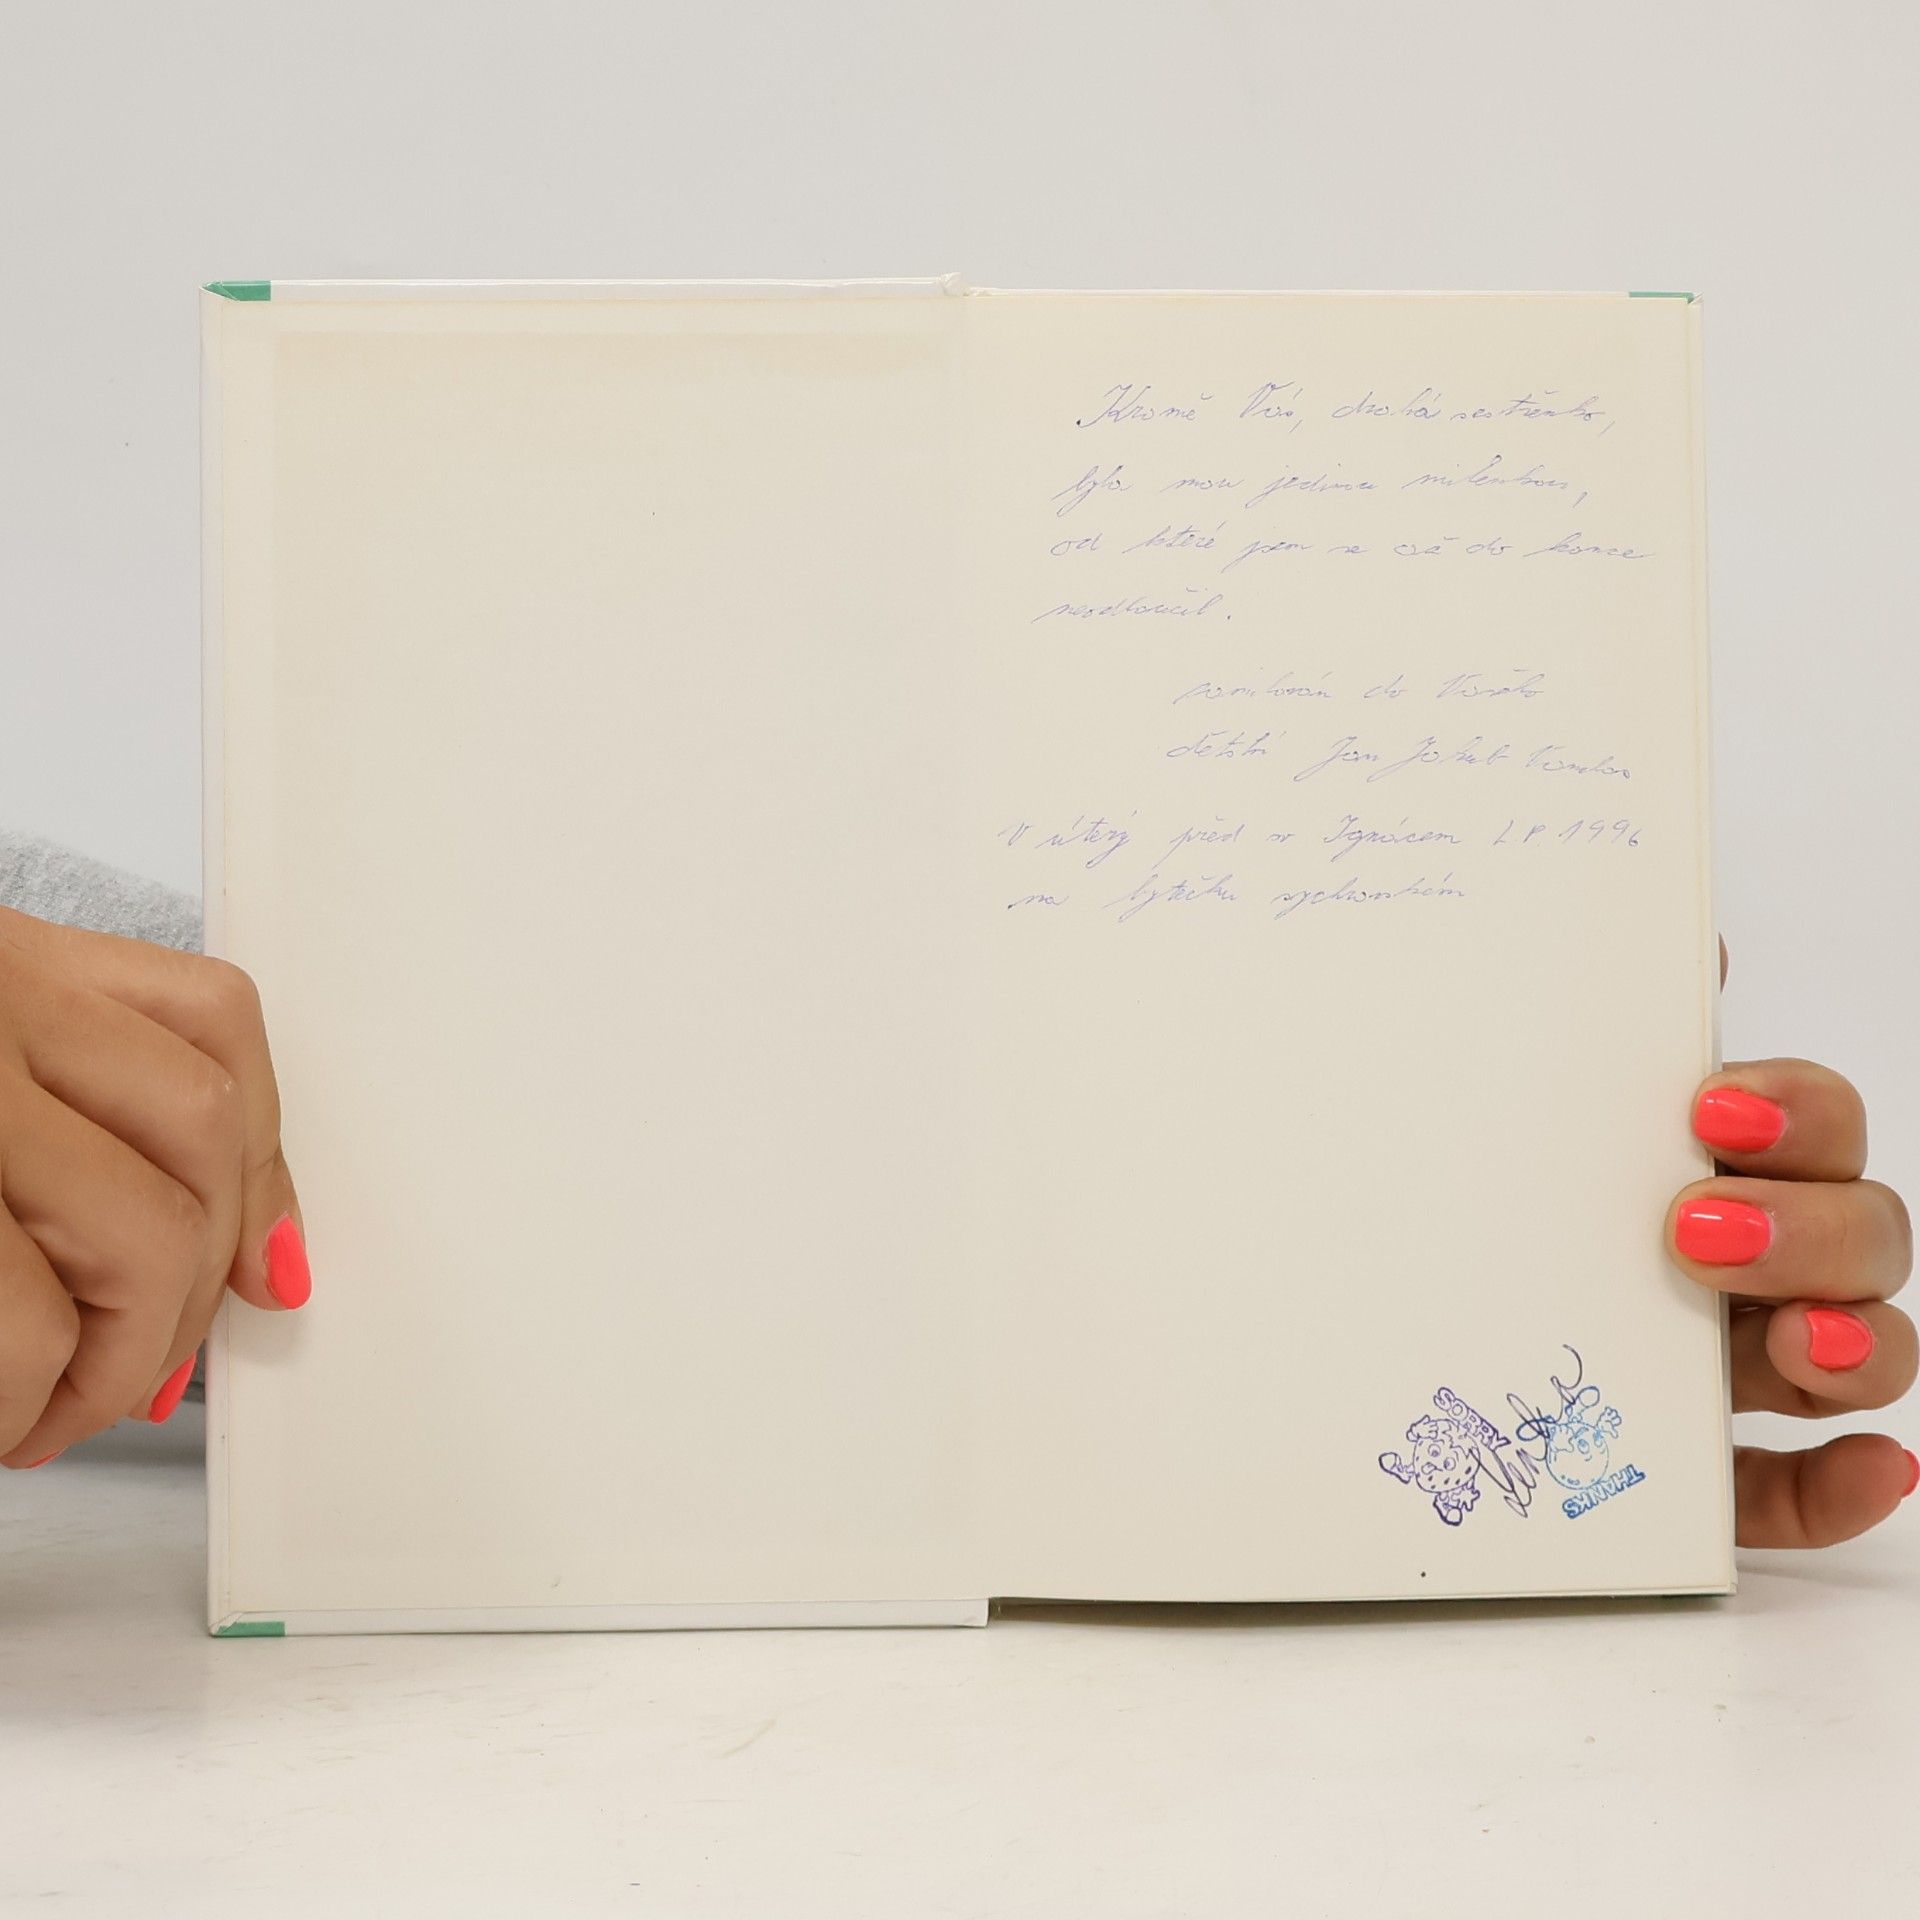 Kromě Vás, drahá sestřenko,
byla mou jedinou milenkou,
od které jsem se až do konce
neodloučil.
zamilován do Vašeho
dětství Jan Jakub
V úterý před sv Ignácem L.P. 1996
na bytečku sychrovském
SORRY
Lenka
THANKS